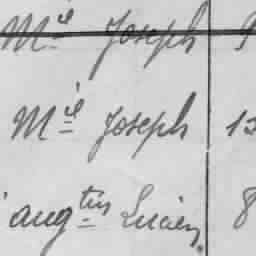 Mel Joseph 9
Mel Joseph 13
augtin Lucien 8